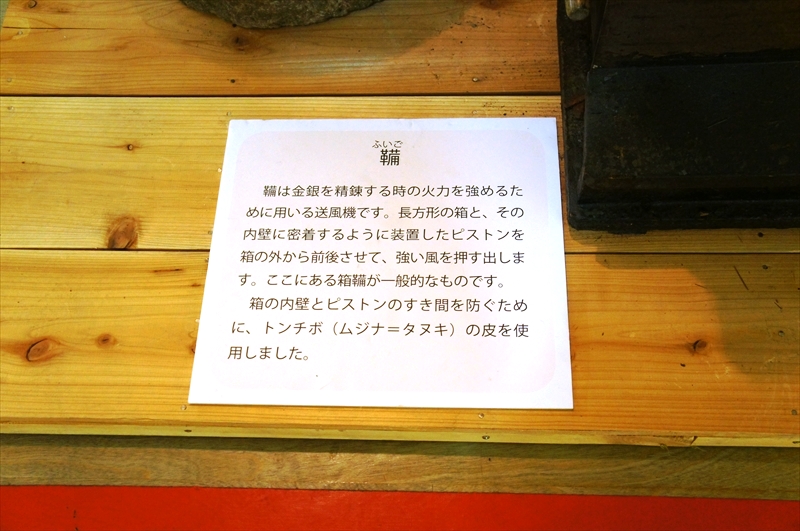 ふいご
鞴
鞴は金銀を精錬する時の火力を強めるた
めに用いる送風機です。長方形の箱と、その
内壁に密着するように装置したピストンを
箱の外から前後させて、強い風を押す出しま
す。ここにある箱鞴が一般的なものです。
箱の内壁とピストンのすき間を防ぐため
に、トンチボ（ムジナ＝タヌキ）の皮を使
用しました。